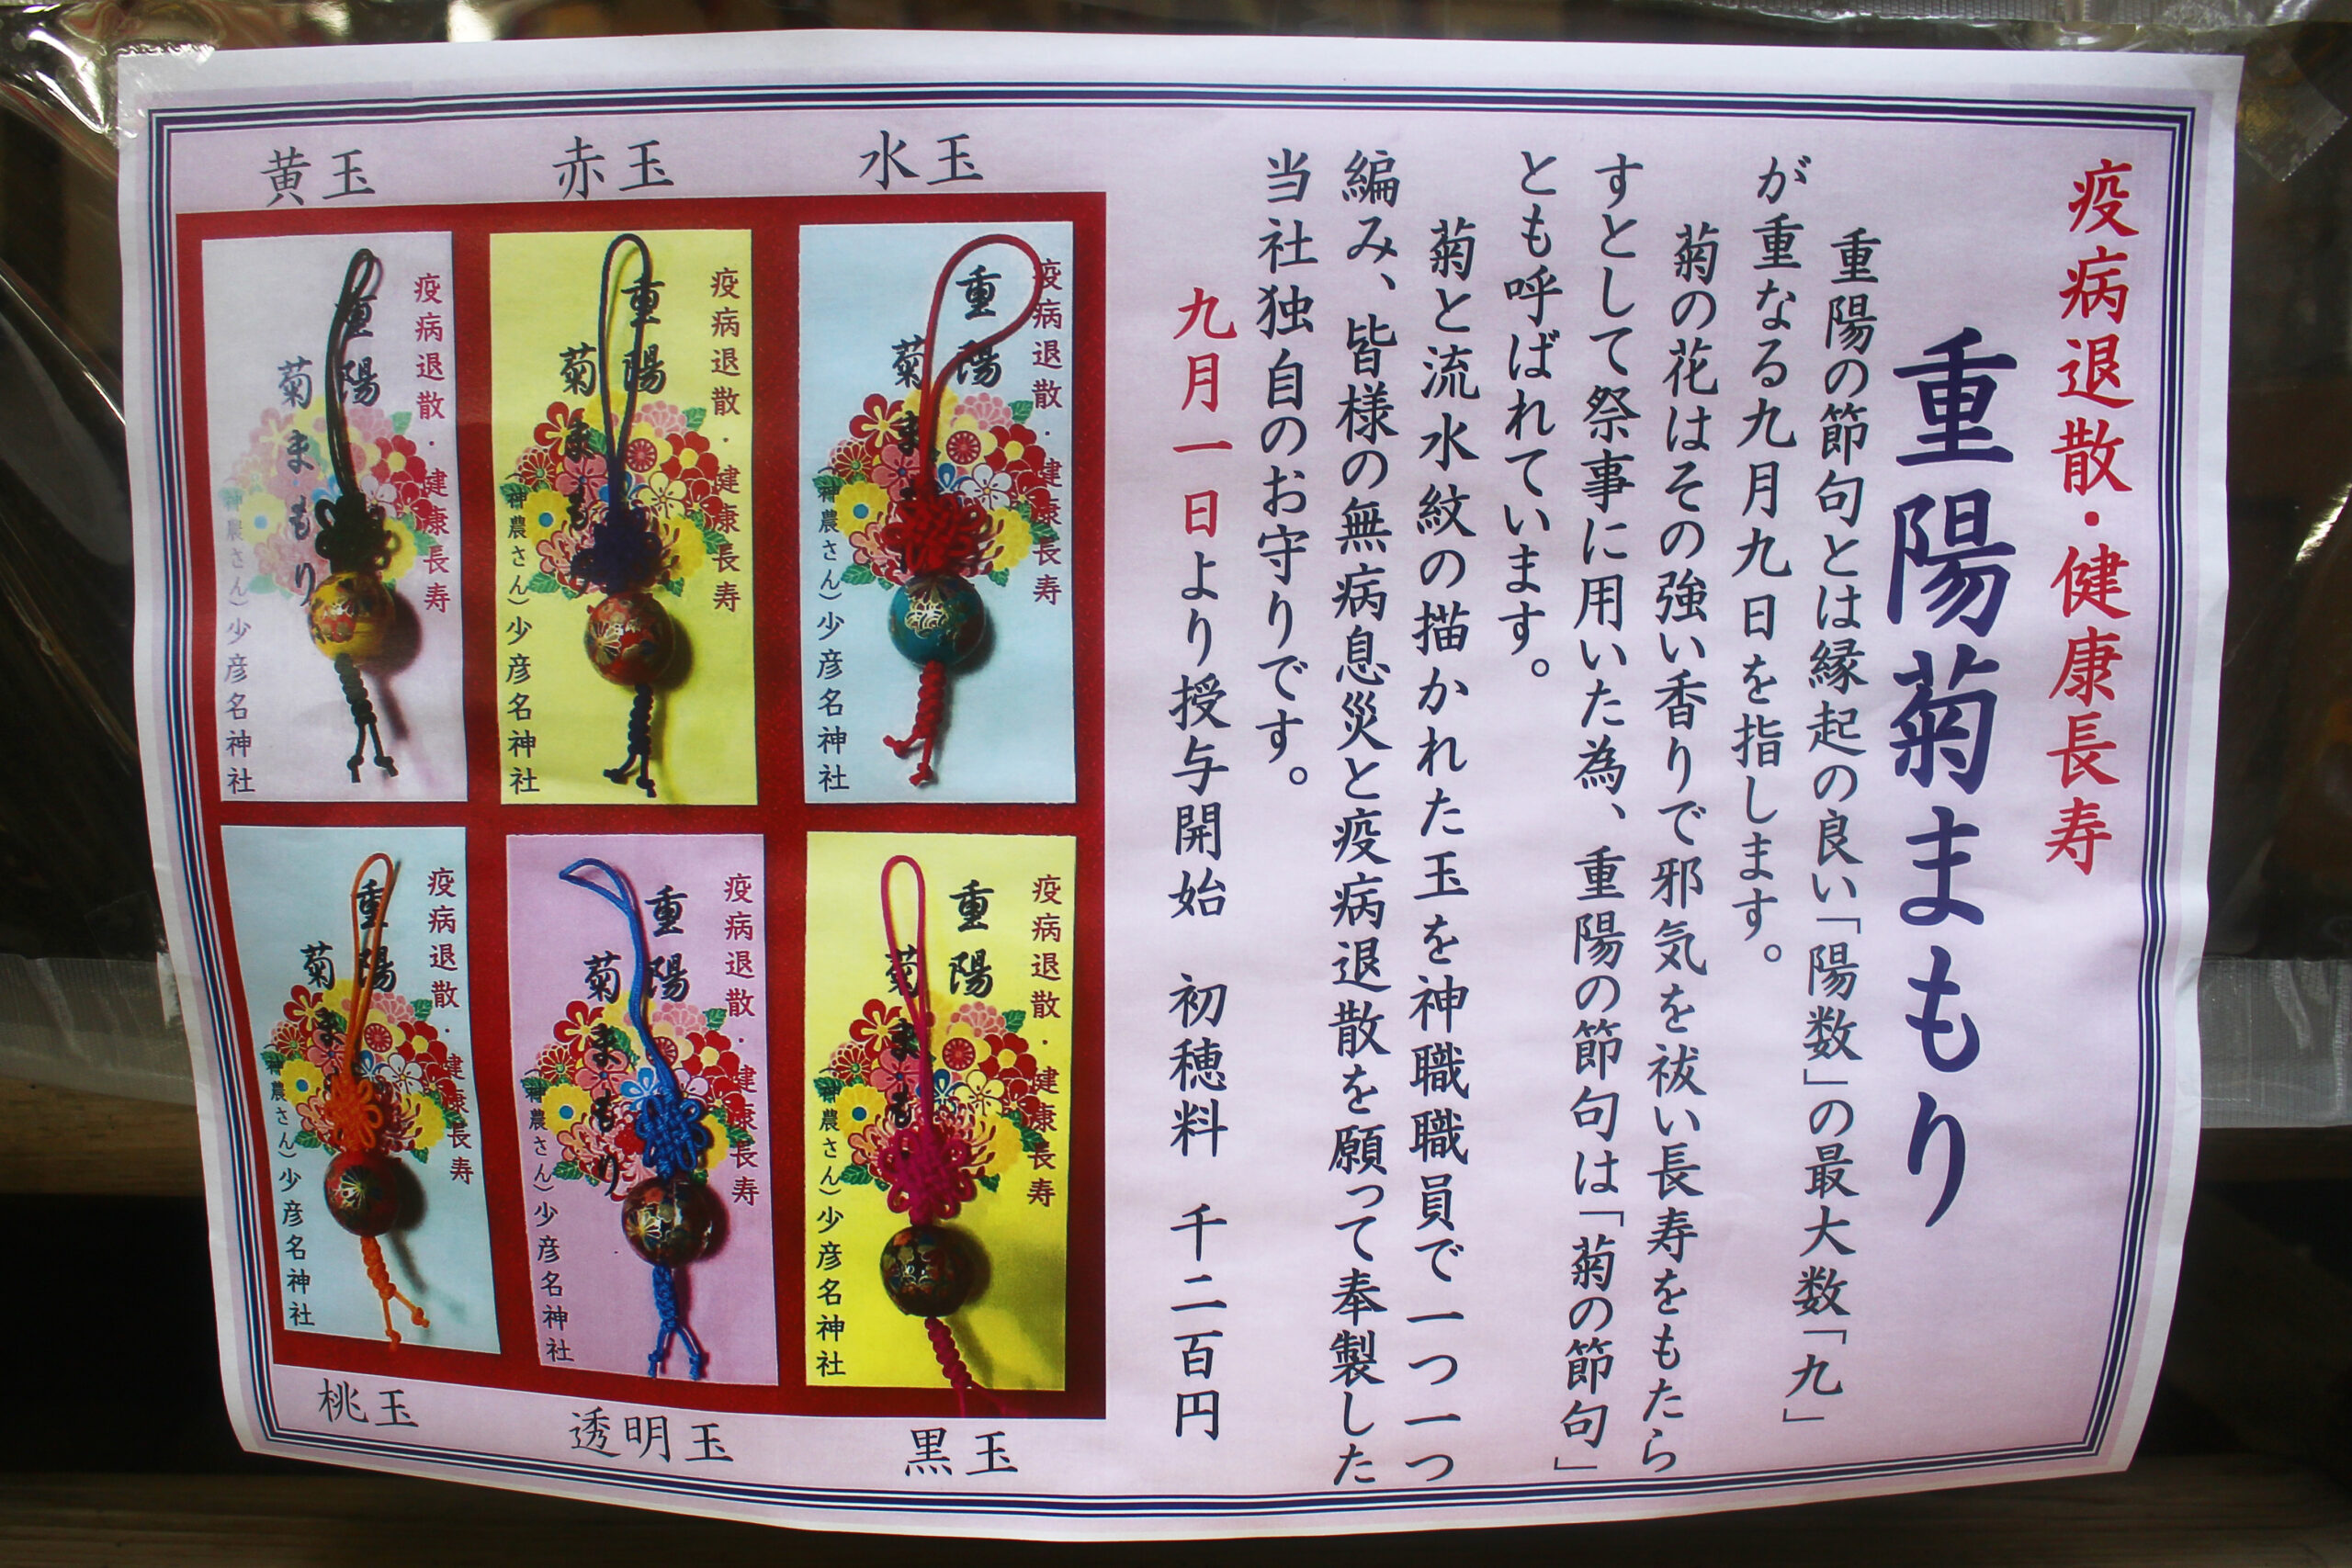 疫病退散・健康長寿
重陽菊まもり
重陽の節句とは縁起の良い「陽数」の最大数「九」
が重なる九月九日を指します。
菊の花はその強い香りで邪気を祓い長寿をもたら
すとして祭事に用いた為、重陽の節句は「菊の節句」
とも呼ばれています。
菊と流水紋の描かれた玉を神職職員で一つ一つ
編み、皆様の無病息災と疫病退散を願って奉製した
当社独自のお守りです。
九月一日より授与開始 初穂料 千二百円
水玉
疫病退散・健康長寿
重陽
菊ま
神農さん)少彦名神社
赤玉
疫病退散・健康長寿
重陽
菊まもり
神農さん)少彦名神社
黄玉
疫病退散・健康長寿
重陽
菊まもり
神農さん)少彦名神社
黒玉
疫病退散・健康長寿
重陽
菊まも
神農さん)少彦名神社
透明玉
疫病退散・健康長寿
重陽
菊まもり
神農さん)少彦名神社
桃玉
疫病退散・健康長寿
重陽
菊ま
神農さん)少彦名神社